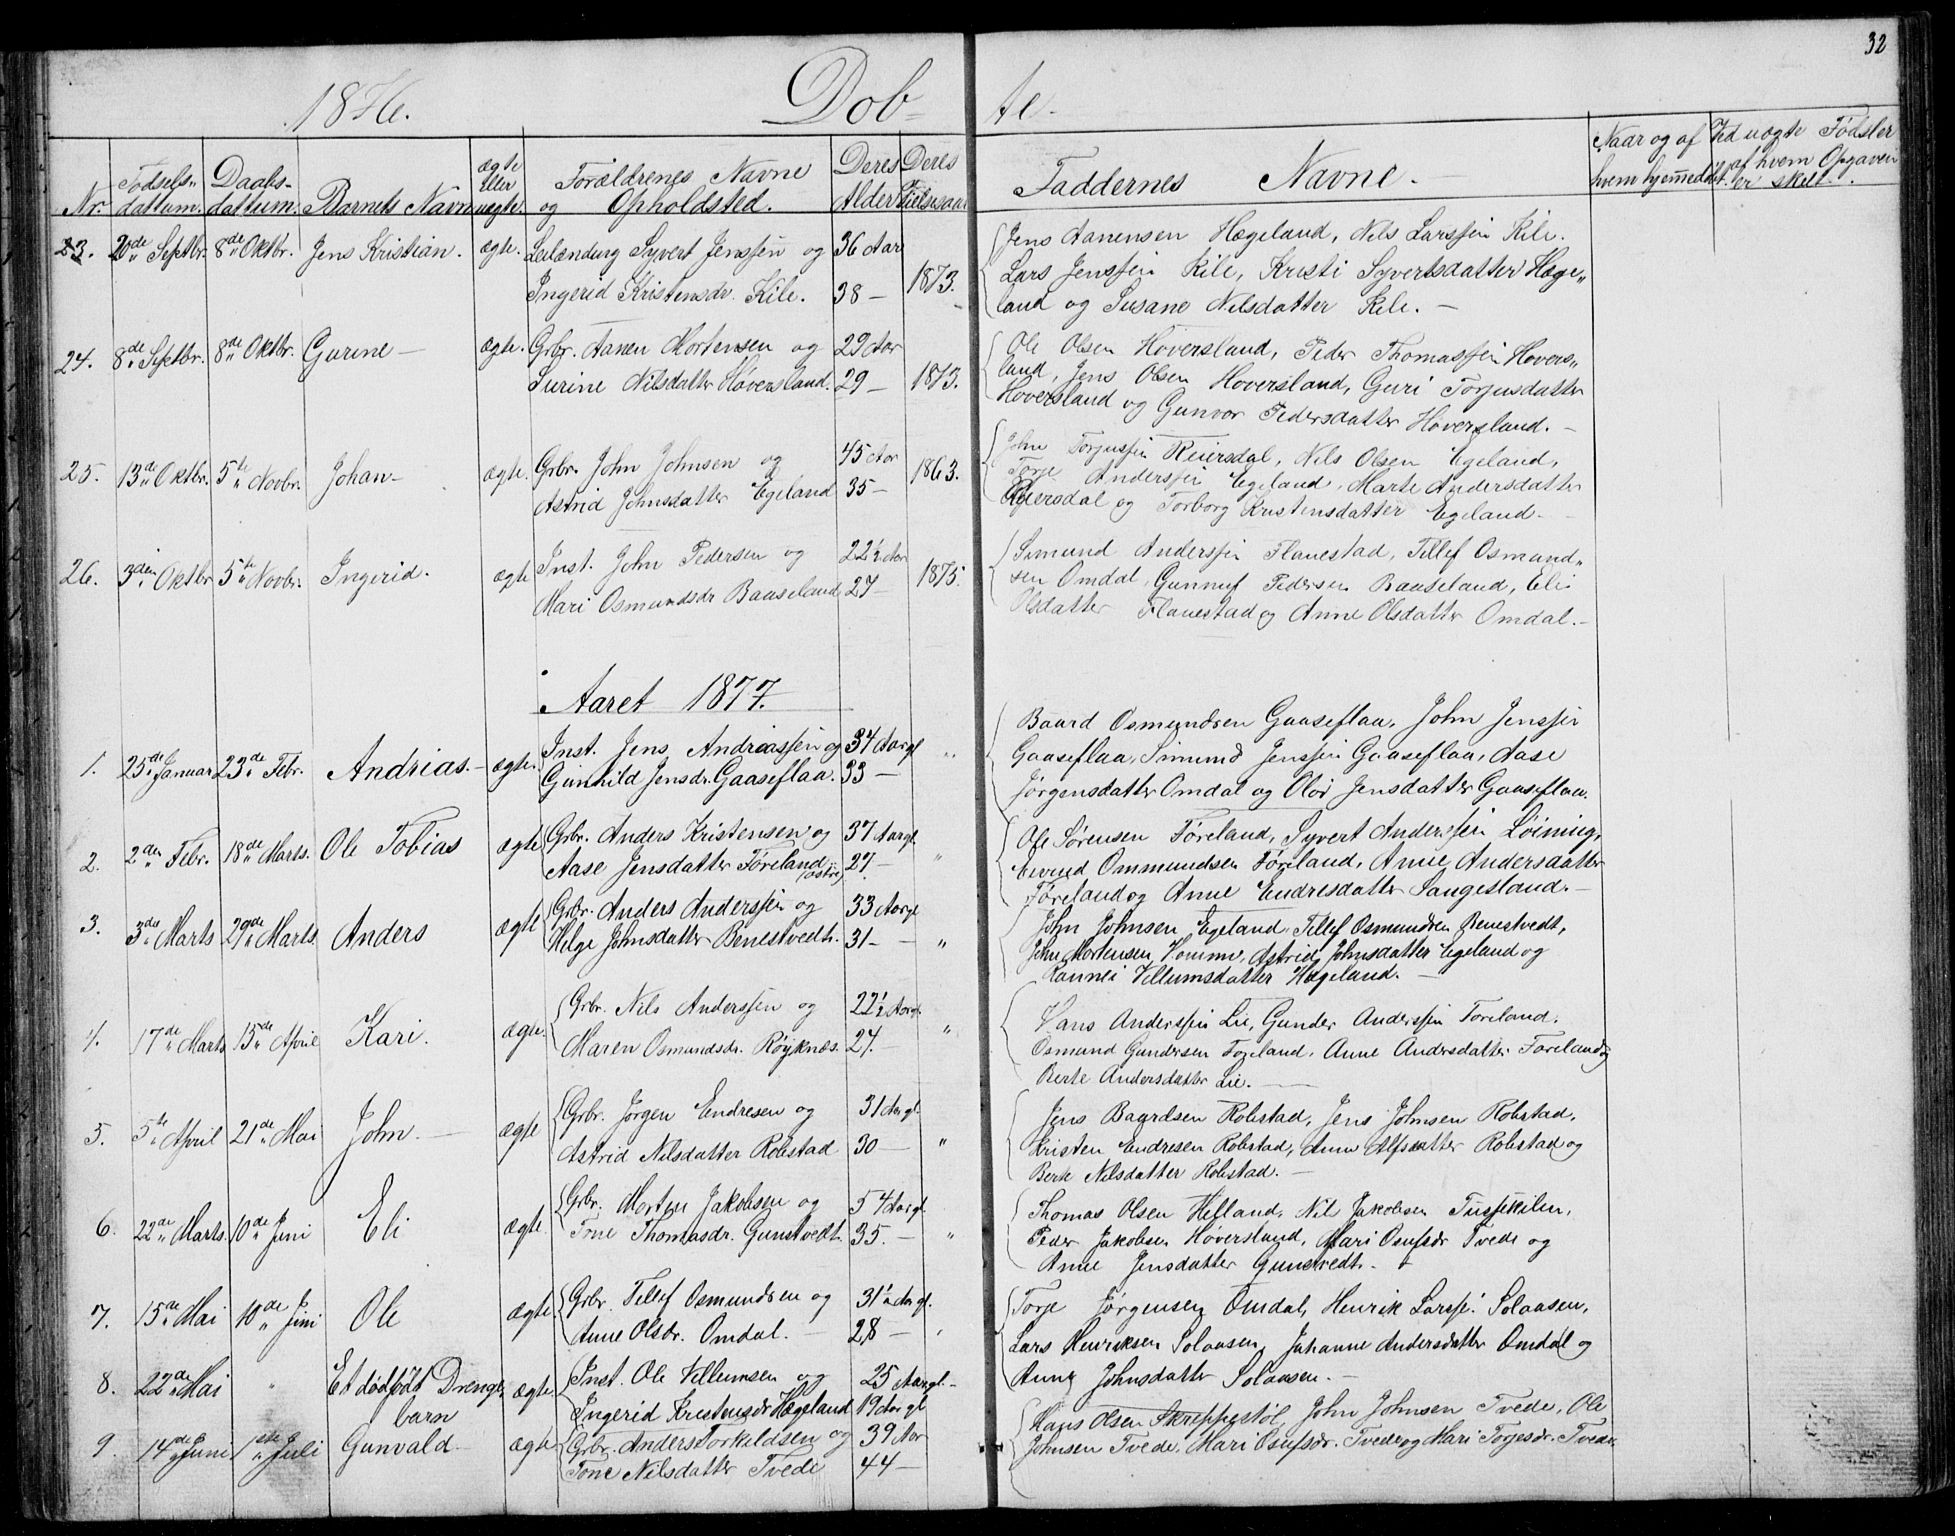 32
1876.
Døbte.
Nr.
Fødsels-
dattum.
Daabs-
dattum.
Barnets Navn
ægte
eller
uægte.
Forældrenes Navne
og Opholdsted.
Deres
Alder
Deres
Vielsesaar
Faddernes Navne.
Naar og af
hvem hjemmedöbt.
Ved uægte Fødsler
af hvem Opgaven
er skeet.
23. 20de Septbr. 8de Oktbr. Jens Kristian. ægte. Leilænding Syvert Jenssen og 36 Aar
Ingerid Kristensdr. Kile. 38 — 1873.
Jens Aanensen Hægeland, Nils Larssen Kile.
Lars Jenssen Kile, Kristi Syvertsdatter Hæge„
land og Susane Nilsdatter Kile. —
24. 8de Septbr. 8de Oktbr. Gurine — ægte. Grbr. Aanen Mortensen og 29 Aar
Surine Nilsdatter Høversland. 29 — 1873.
Ole Olsen Høversland, Peder Thomassen Høvers„
land, Jens Olsen Høversland, Guri Torjusdatter
Høversland og Gunvor Pedersdatter Høversland. —
25. 13de Oktbr. 5te Novbr. Johan — ægte. Grbr. John Johnsen og 45 Aar
Astrid Johnsdatter Egeland 35 — 1863.
John Torjussen Reiersdal, Nils Olsen Egeland,
Torje Anderssen Egeland, Marte Andersdatter
Reiersdal og Torborg Kristensdatter Egeland. —
26. 3den Oktbr 5te Novbr. Ingerid. ægte Inst. John Pedersen og 22½ Aar
Mari Osmundsdr Baaseland 27 — 1875.
Simund Anderssen Flanestad, Tellef Osmund„
sen Omdal, Gunnuf Pedersen Baaseland, Eli
Olsdatter Flanestad og Anne Olsdatter Omdal. —
Aaret 1877.
1. 25de Januar 23de Febr. Andrias. — ægte. Inst. Jens Andriassen og 34 Aar gl „
Gunhild Jensdr. Gaaseflaa. 33 —
Baard Osmundsen Gaaseflaa, John Jenssen
Gaaseflaa, Simund Jenssen Gaaseflaa, Aase
Jørgensdatter Omdal og Oloi Jensdatter Gaaseflaa.
2. 2den Febr. 18de Marts. Ole Tobias ægte Grbr. Anders Kristensen og 37 Aar gl.
Aase Jensdatter Føreland (østre) 27. — „
Ole Sørensen Føreland, Syvert Anderssen Løining,
Eivind Ommundsen Føreland, Anne Andersdatter
Føreland og Anne Endresdatter Sangesland. —
3. 3die Marts 29de Marts. Anders ægte Grbr. Anders Anderssen og 33 Aar gl
Helge Johnsdatter Benestvedt. 31 — „
John Johnsen Egeland, Tellef Osmundsen Benestvedt,
John Mortensen Homme, Astrid Johnsdatter Egeland og
Rannei Villumsdatter Hægeland. —
4. 17de Marts 15de April Kari. ægte. Grbr. Nils Anderssen og 22½ Aar gl. „
Maren Osmundsdr. Røyknæs. 27. —
Hans Anderssen Lie, Gunder Anderssen Føreland,
Osmund Gundersen Føreland, Anne Andersdatter Føreland og
Berte Andersdatter Lie. —
5. 5te April 21de Mai John. — ægte Grbr. Jørgen Endresen og 31 Aar gl.
Astrid Nilsdatter Robstad 30 — „
Jens Baardsen Robstad, Jens Johnsen Robstad,
Kristen Endresen Robstad, Anne Alfsdatter Robstad og
Berte Nilsdatter Robstad. —
6. 22de Marts. 10de Juni Eli ægte. Grbr. Morten Jakobsen og 54 Aar gl
Tone Thomasdr. Gunstvedt. 35. — „
Thomas Olsen Helland, Nil Jakobsen
Peder Jakobsen Høversland, Mari Osufsdr Tvede og
Anne Jensdatter Gunstvedt. —
7. 15de Mai 10de Juni Ole ægte. Grbr. Tellef Osmundsen og 31½ Aar gl.
Anne Olsdr. Omdal. — 28 — „
Torje Jørgensen Omdal, Henrik Larss. Solaasen,
Lars Henriksen Solaasen, Johanne Andersdatter Omdal og
Anne Johnsdatter Solaasen. —
8. 22de Mai „ Et dødfødt Drenge„
barn ægte. Inst. Ole Villumsen og 25 Aar gl. —
Ingerid Kristensdr Hægeland 19 Aar gl
9. 14de Juni 1ste Juli Gunvald. ægte Grbr. Anders Torkildsen og 39 Aar
Tone Nilsdatter Tvede 44 —
Hans Olsen Skreppestøl, John Johnsen Tvede, Ole
Johnsen Tvede, Mari Osufsdr. Tvede og Mari Torjesdr. Tvede.